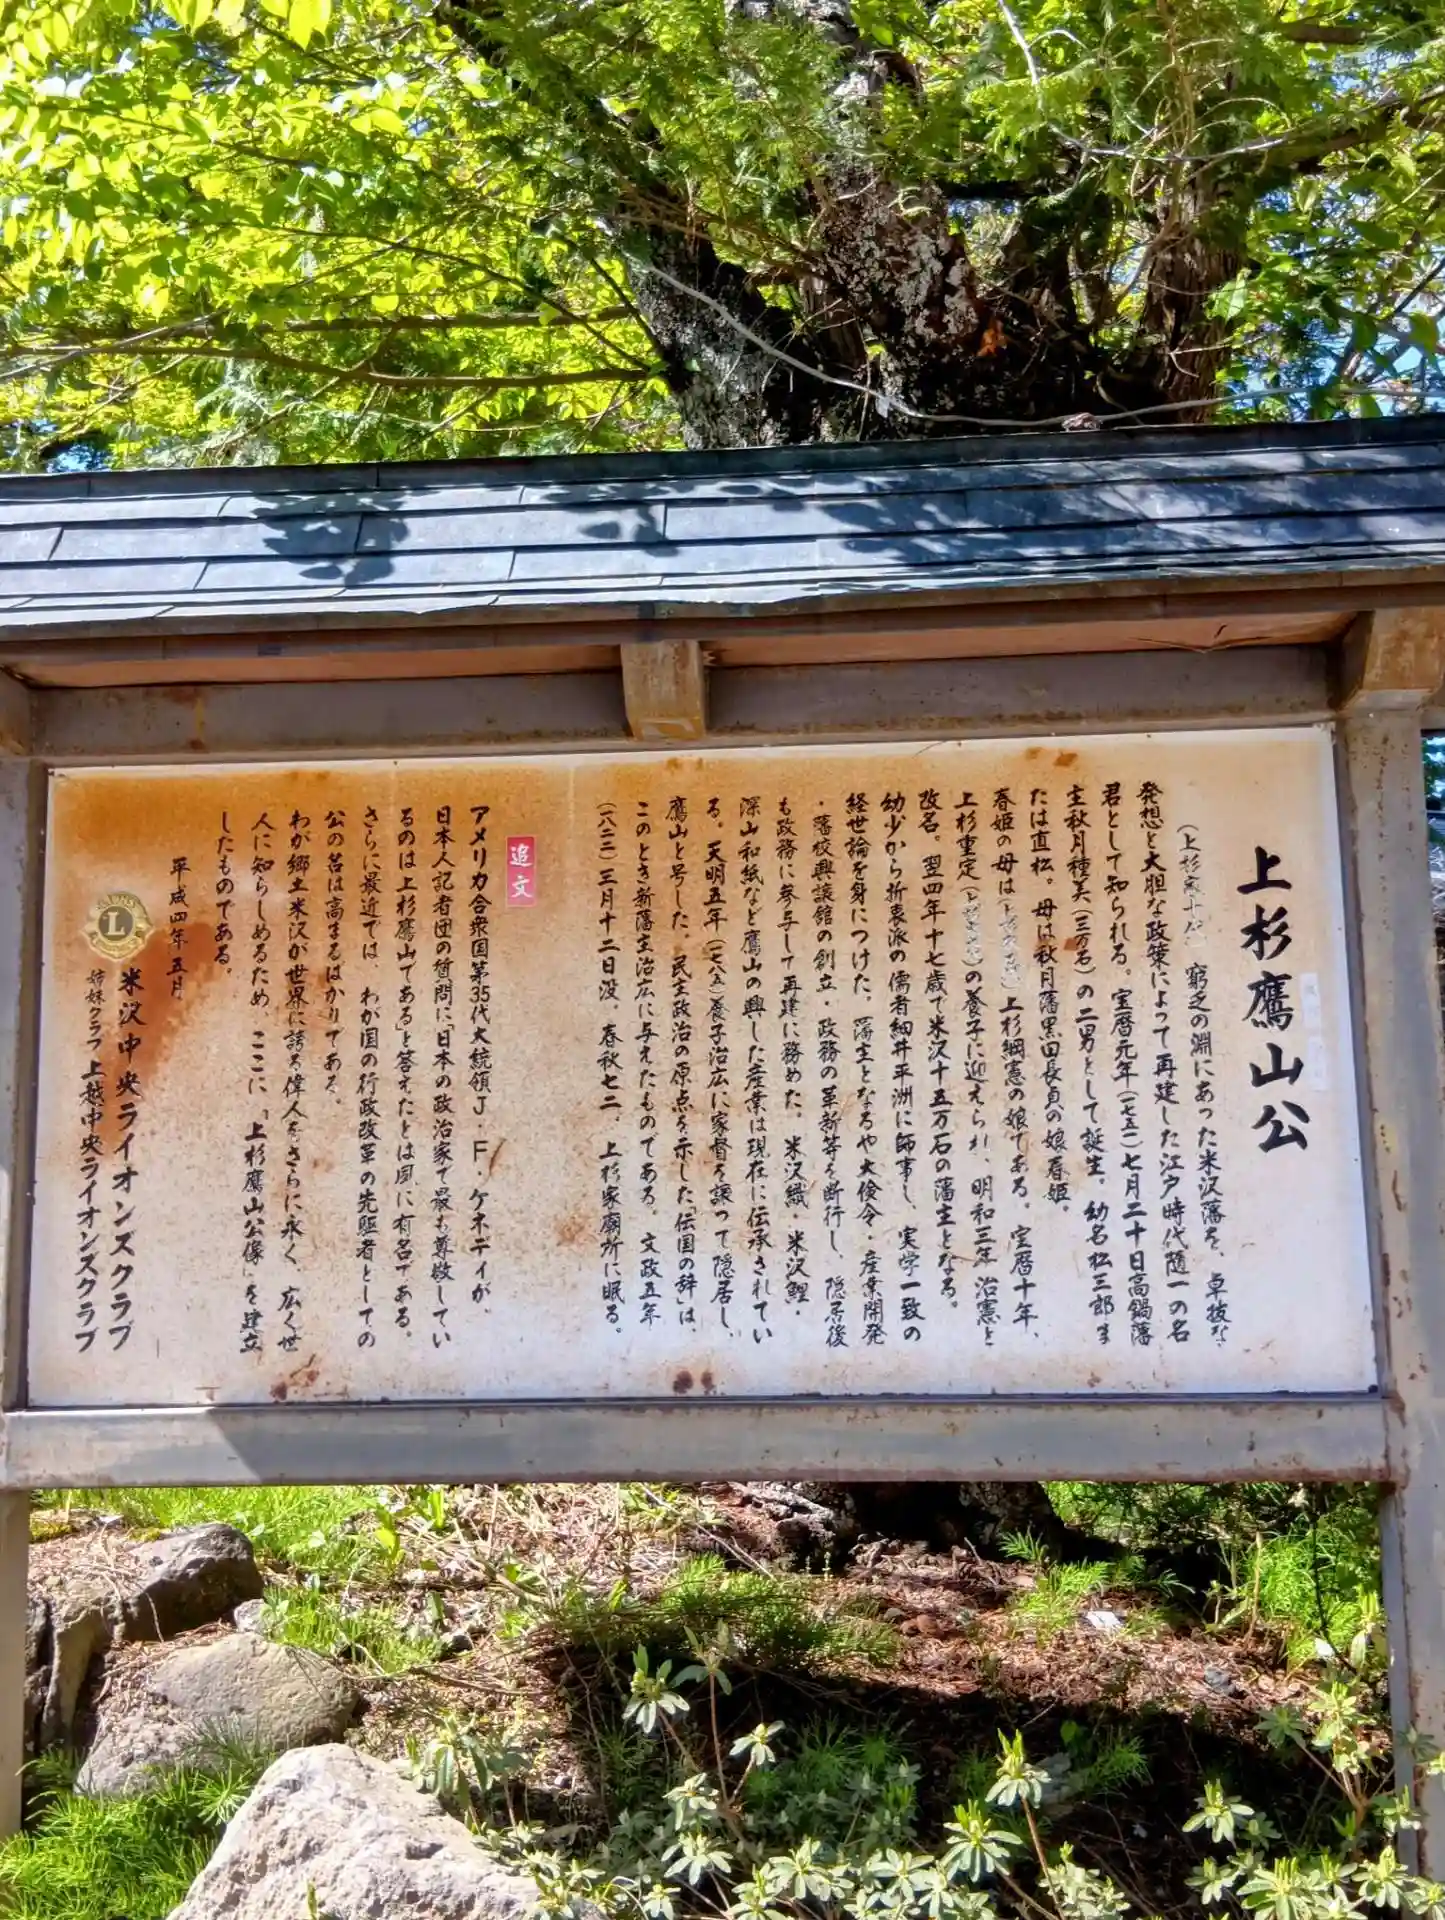 上杉鷹山公
窮乏の淵にあった米沢藩を、卓抜な
発想と大胆な政策によって再建した江戸時代随一の名
君として知られる。宝暦元年(一七五一)七月二十日高鍋藩
主秋月種美(三万石)の二男として誕生。幼名松三郎ま
たは直松。母は秋月藩黒田長貞の娘春姫。
春姫の母は 上杉綱憲の娘である。宝暦十年、
上杉重定 の養子に迎えられ、明和三年治憲と
改名。翌四年十七歳で米沢十五万石の藩主となる。
幼少から折衷派の儒者細井平洲に師事し、実学一致の
経世論を身につけた。藩主となるや大倹令・産業開発
・藩校興譲館の創立・政務の革新等を断行し、隠居後
も政務に参与して再建に務めた。米沢織・米沢鯉・
深山和紙など鷹山の興した産業は現在に伝承されてい
る。天明五年(一七八五)養子治広に家督を譲って隠居し、
鷹山と号した。民主政治の原点を示した「伝国の辞」は、
このとき新藩主治広に与えたものである。文政五年
(一八二二)三月十二日没。春秋七二。上杉家廟所に眠る。
追文
アメリカ合衆国第35代大統領J・F・ケネディが、
日本人記者団の質問に「日本の政治家で最も尊敬してい
るのは上杉鷹山である」と答えたとは囲に有名である。
さらに最近では、わが国の行政改革の先駆者としての
公の名は高まるばかりである。
わが郷土米沢が世界に誇る偉人をさらに永く、広く世
人に知らしめるため、ここに「上杉鷹山公像」を建立
したものである。
平成四年五月
米沢中央ライオンズクラブ
姉妹クラブ 上越中央ライオンズクラブ